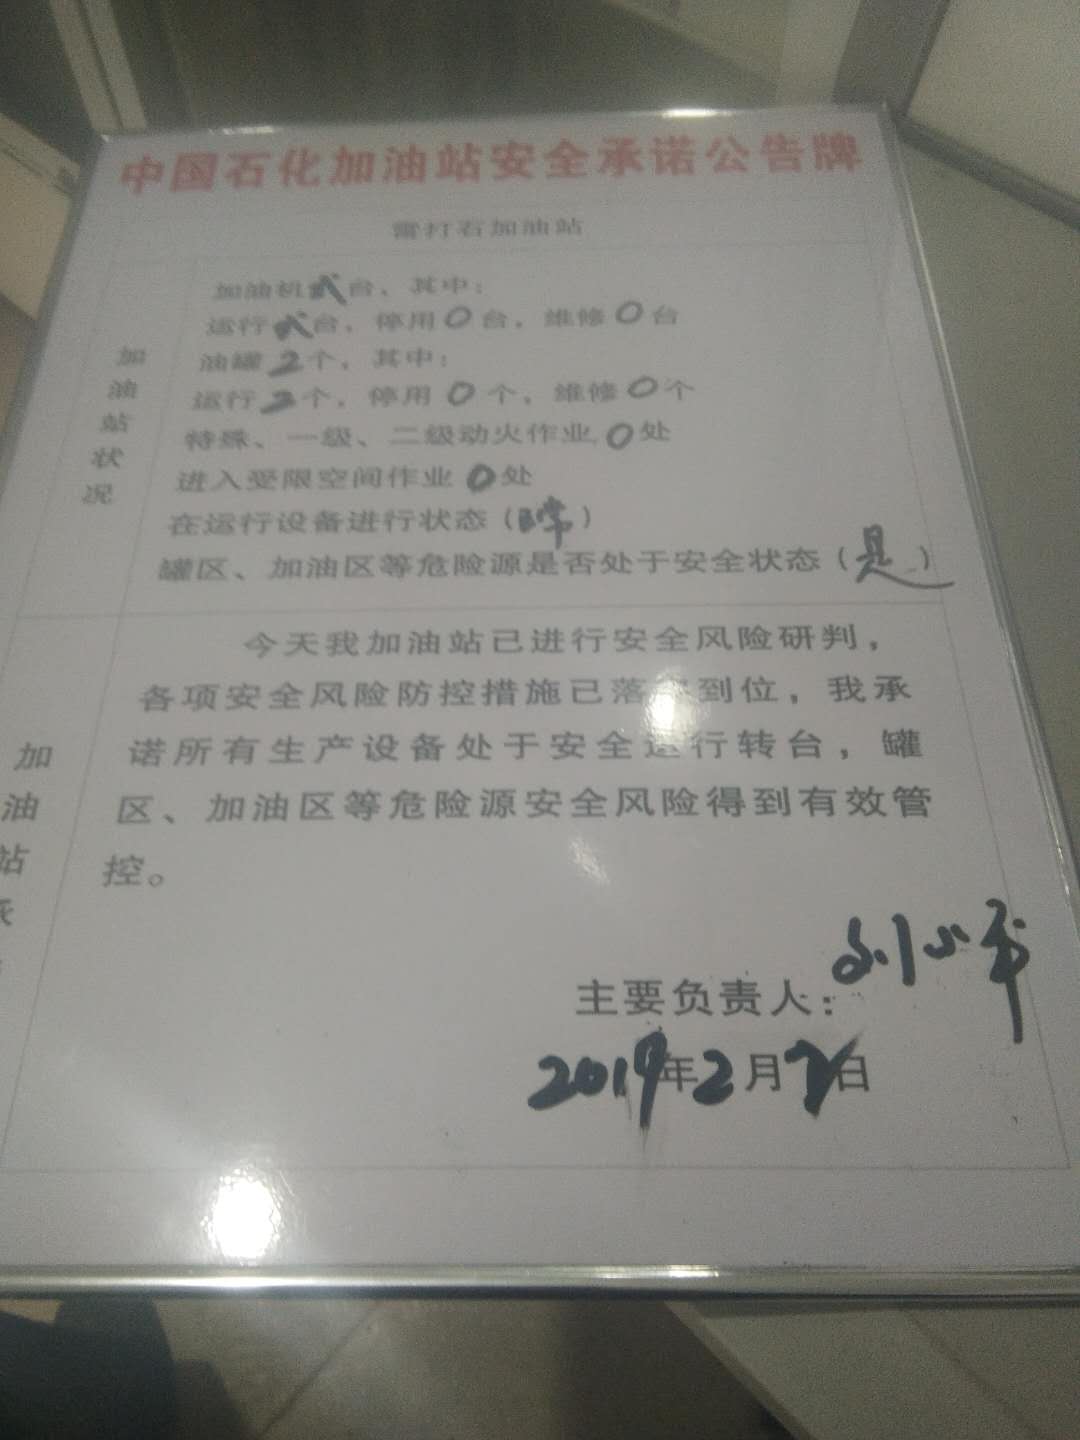 中国石化加油站安全承诺公告牌
雷打石加油站
加油站状况
加油机 台，其中：
运行 台，停用0台，维修0台
油罐2个，其中：
运行2个，停用0个，维修0个
特殊、一级、二级动火作业0处
进入受限空间作业0处
在运行设备进行状态（正常）
罐区、加油区等危险源是否处于安全状态（是）
加油站承
今天我加油站已进行安全风险研判，
各项安全风险防控措施已落实到位，我承
诺所有生产设备处于安全运行转台，罐
区、加油区等危险源安全风险得到有效管
控。
主要负责人：刘小平
2019年2月2日